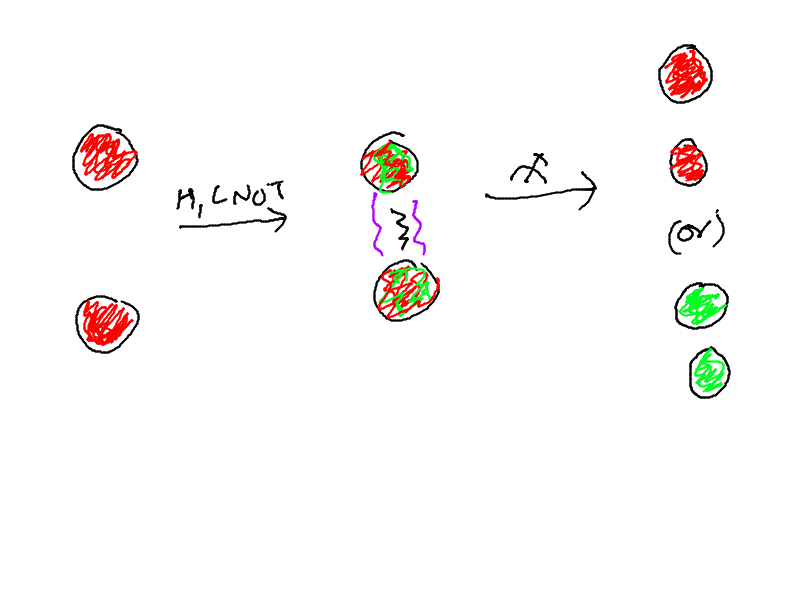 H, CNOT
(or)